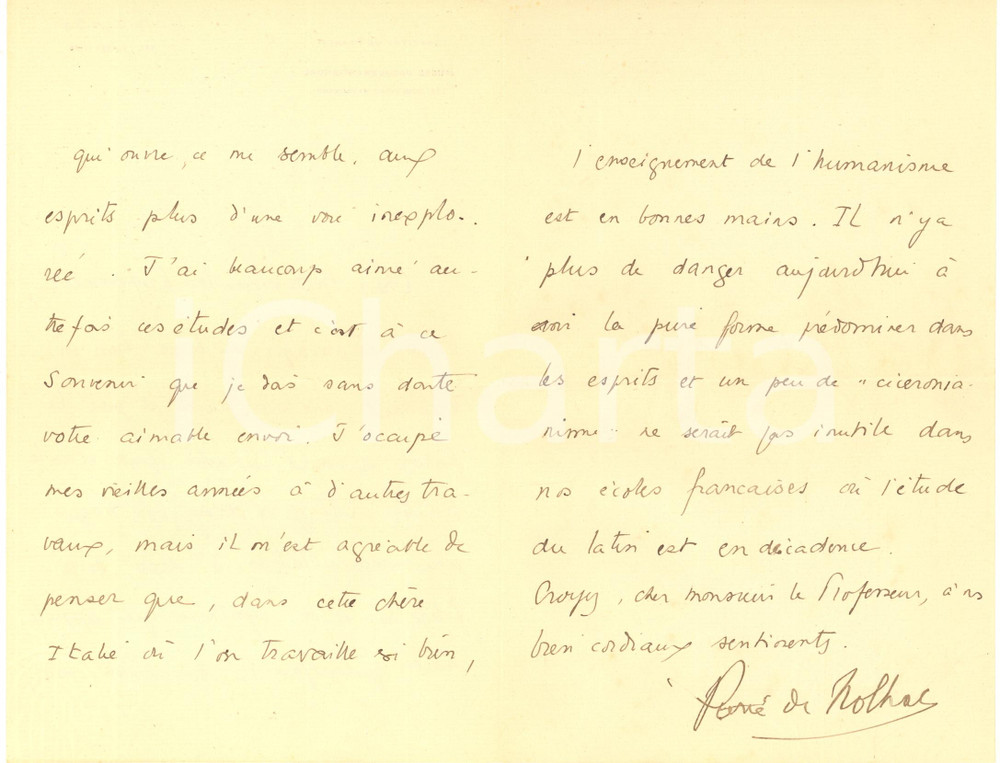 qui ouvre, ce me semble, aux
esprits plus d'une voie inexplo-
rée. J'ai beaucoup aimé au-
trefois ces études et c'est à ce
souvenir que je dois sans doute
votre aimable envoi. J'occupe
mes vieilles années à d'autres tra-
vaux, mais il m'est agréable de
penser que, dans cette chère
Italie où l'on travaille si bien,
l'enseignement de l'humanisme
est en bonnes mains. Il n'y a
plus de danger aujourd'hui à
voir la pure forme prédominer dans
les esprits et un peu de "ciceronia-
nisme" ne serait pas inutile dans
nos écoles françaises où l'étude
du latin est en décadence.
Croyez, cher monsieur le Professeur, à
bien cordiaux sentiments.
Pierre de Nolhac
iCharta